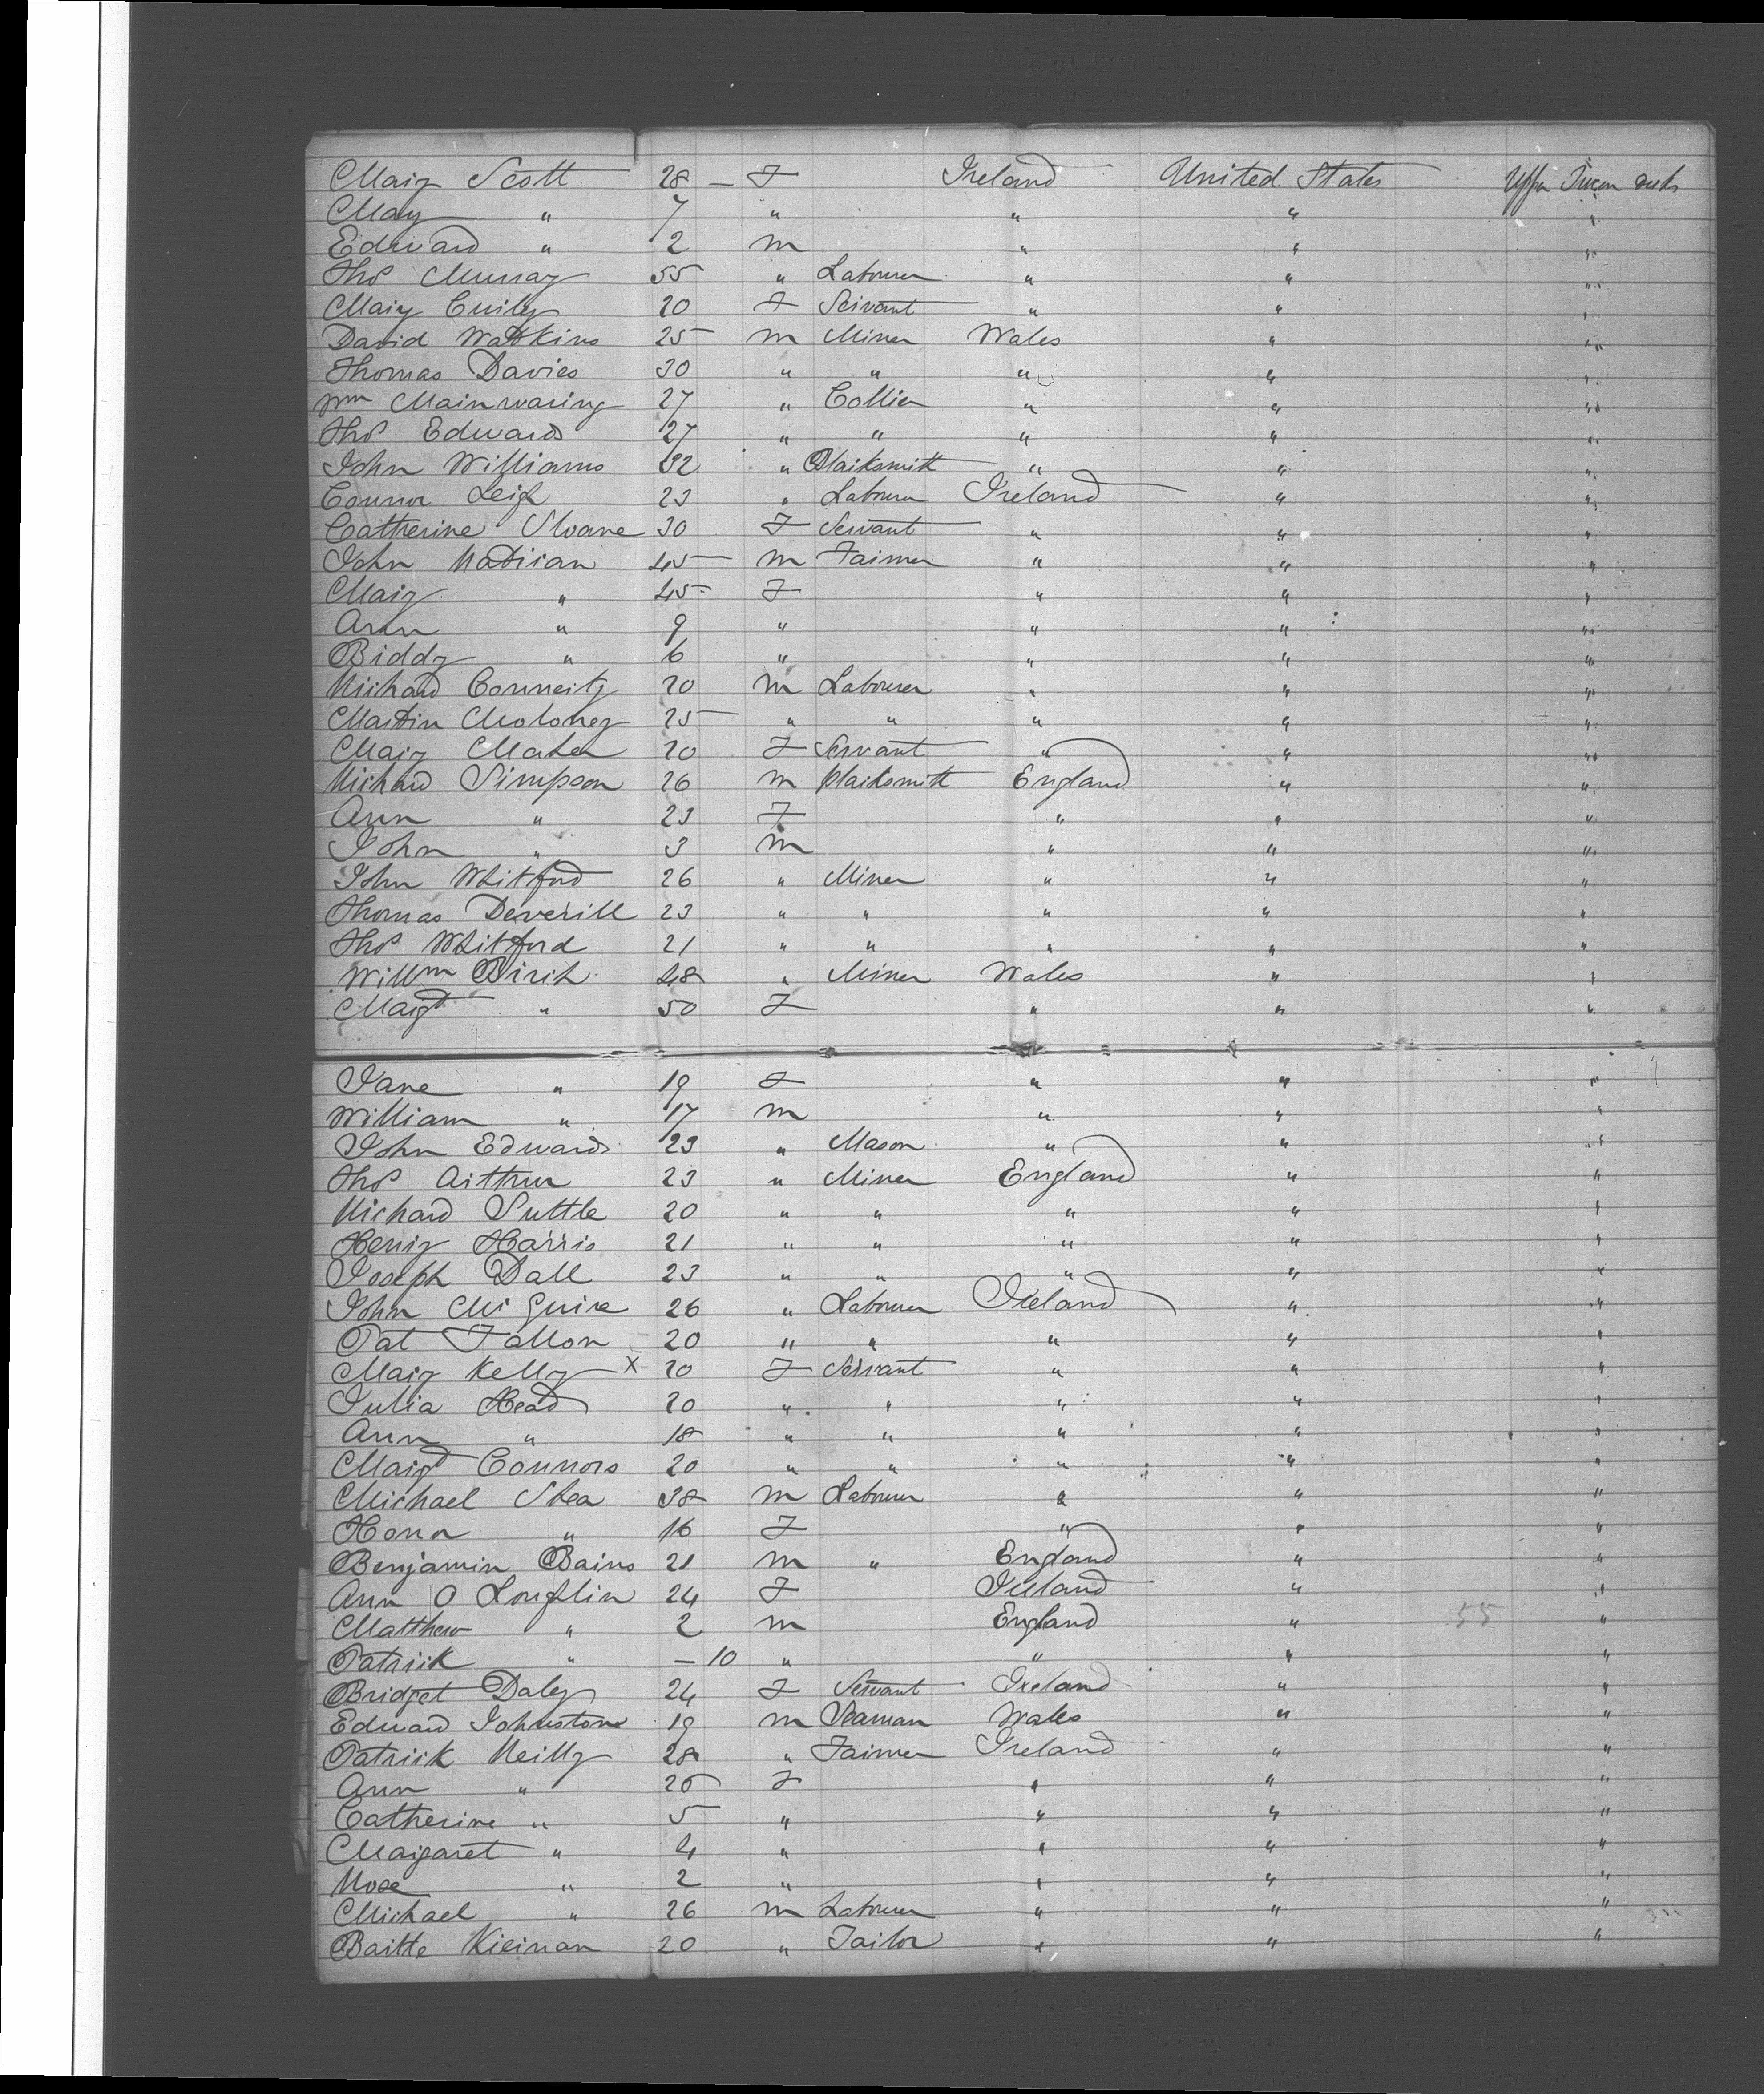 Mary Scott 28 — F Ireland United States Upper Tween decks
May " 7 " " " "
Edward " 2 m " " "
Thos Murray 55 " Labourer " " "
Mary Cuily 20 F Servant " " "
David Watkins 25 m Miner Wales " "
Thomas Davies 30 " " " " "
Wm Mainwaring 27 " Collier " " "
Thos Edwards 27 " " " " "
John Williams 32 " Blacksmith " " "
Connor Leigh 23 " Labourer Ireland " "
Catherine Sloane 30 F Servant " " "
John Madigan 45 m Farmer " " "
Mary " 45 F " " "
Ann " 9 " " " "
Biddy " 6 " " " "
Richard Conneity 20 m Labourer " " "
Martin Moloney 25 " " " " "
Mary Maher 20 F Servant " " "
Richard Simpson 26 m Blacksmith England " "
Ann " 23 F " " "
John " 3 m " " "
John Whitford 26 " Miner " " "
Thomas Deverill 23 " " " " "
Thos Whitford 21 " " " " "
Willm Birch 48 " Miner Wales " "
Margt " 50 F " " "
Jane " 19 F " " "
William " 17 m " " "
John Edwards 23 " Mason " " "
Thos Arthur 23 " Miner England " "
Richard Suttle 20 " " " " "
Henry Harris 21 " " " " "
Joseph Dall 23 " " " " "
John McGuire 26 " Labourer Ireland " "
Pat Fallon 20 " " " " "
Mary Kelly x 20 F Servant " " "
Julia Head 20 " " " " "
Ann " 18 " " " " "
Margt Connors 20 " " " " "
Michael Shea 38 m Labourer " " "
Honor " 16 F " " "
Benjamin Bains 21 m " England " "
Ann O Loughlin 24 F Ireland " "
Matthew " 2 m England " 55 "
Patrick " — 10 " " " "
Bridget Daley 24 F Servant Ireland " "
Edward Johnstone 19 m Seaman Wales " "
Patrick Reilly 28 " Farmer Ireland " "
Ann " 26 F " " "
Catherine " 5 " " " "
Margaret " 4 " " " "
Rose " 2 " " " "
Michael " 26 m Labourer " " "
Kiernan 20 " Tailor " " "